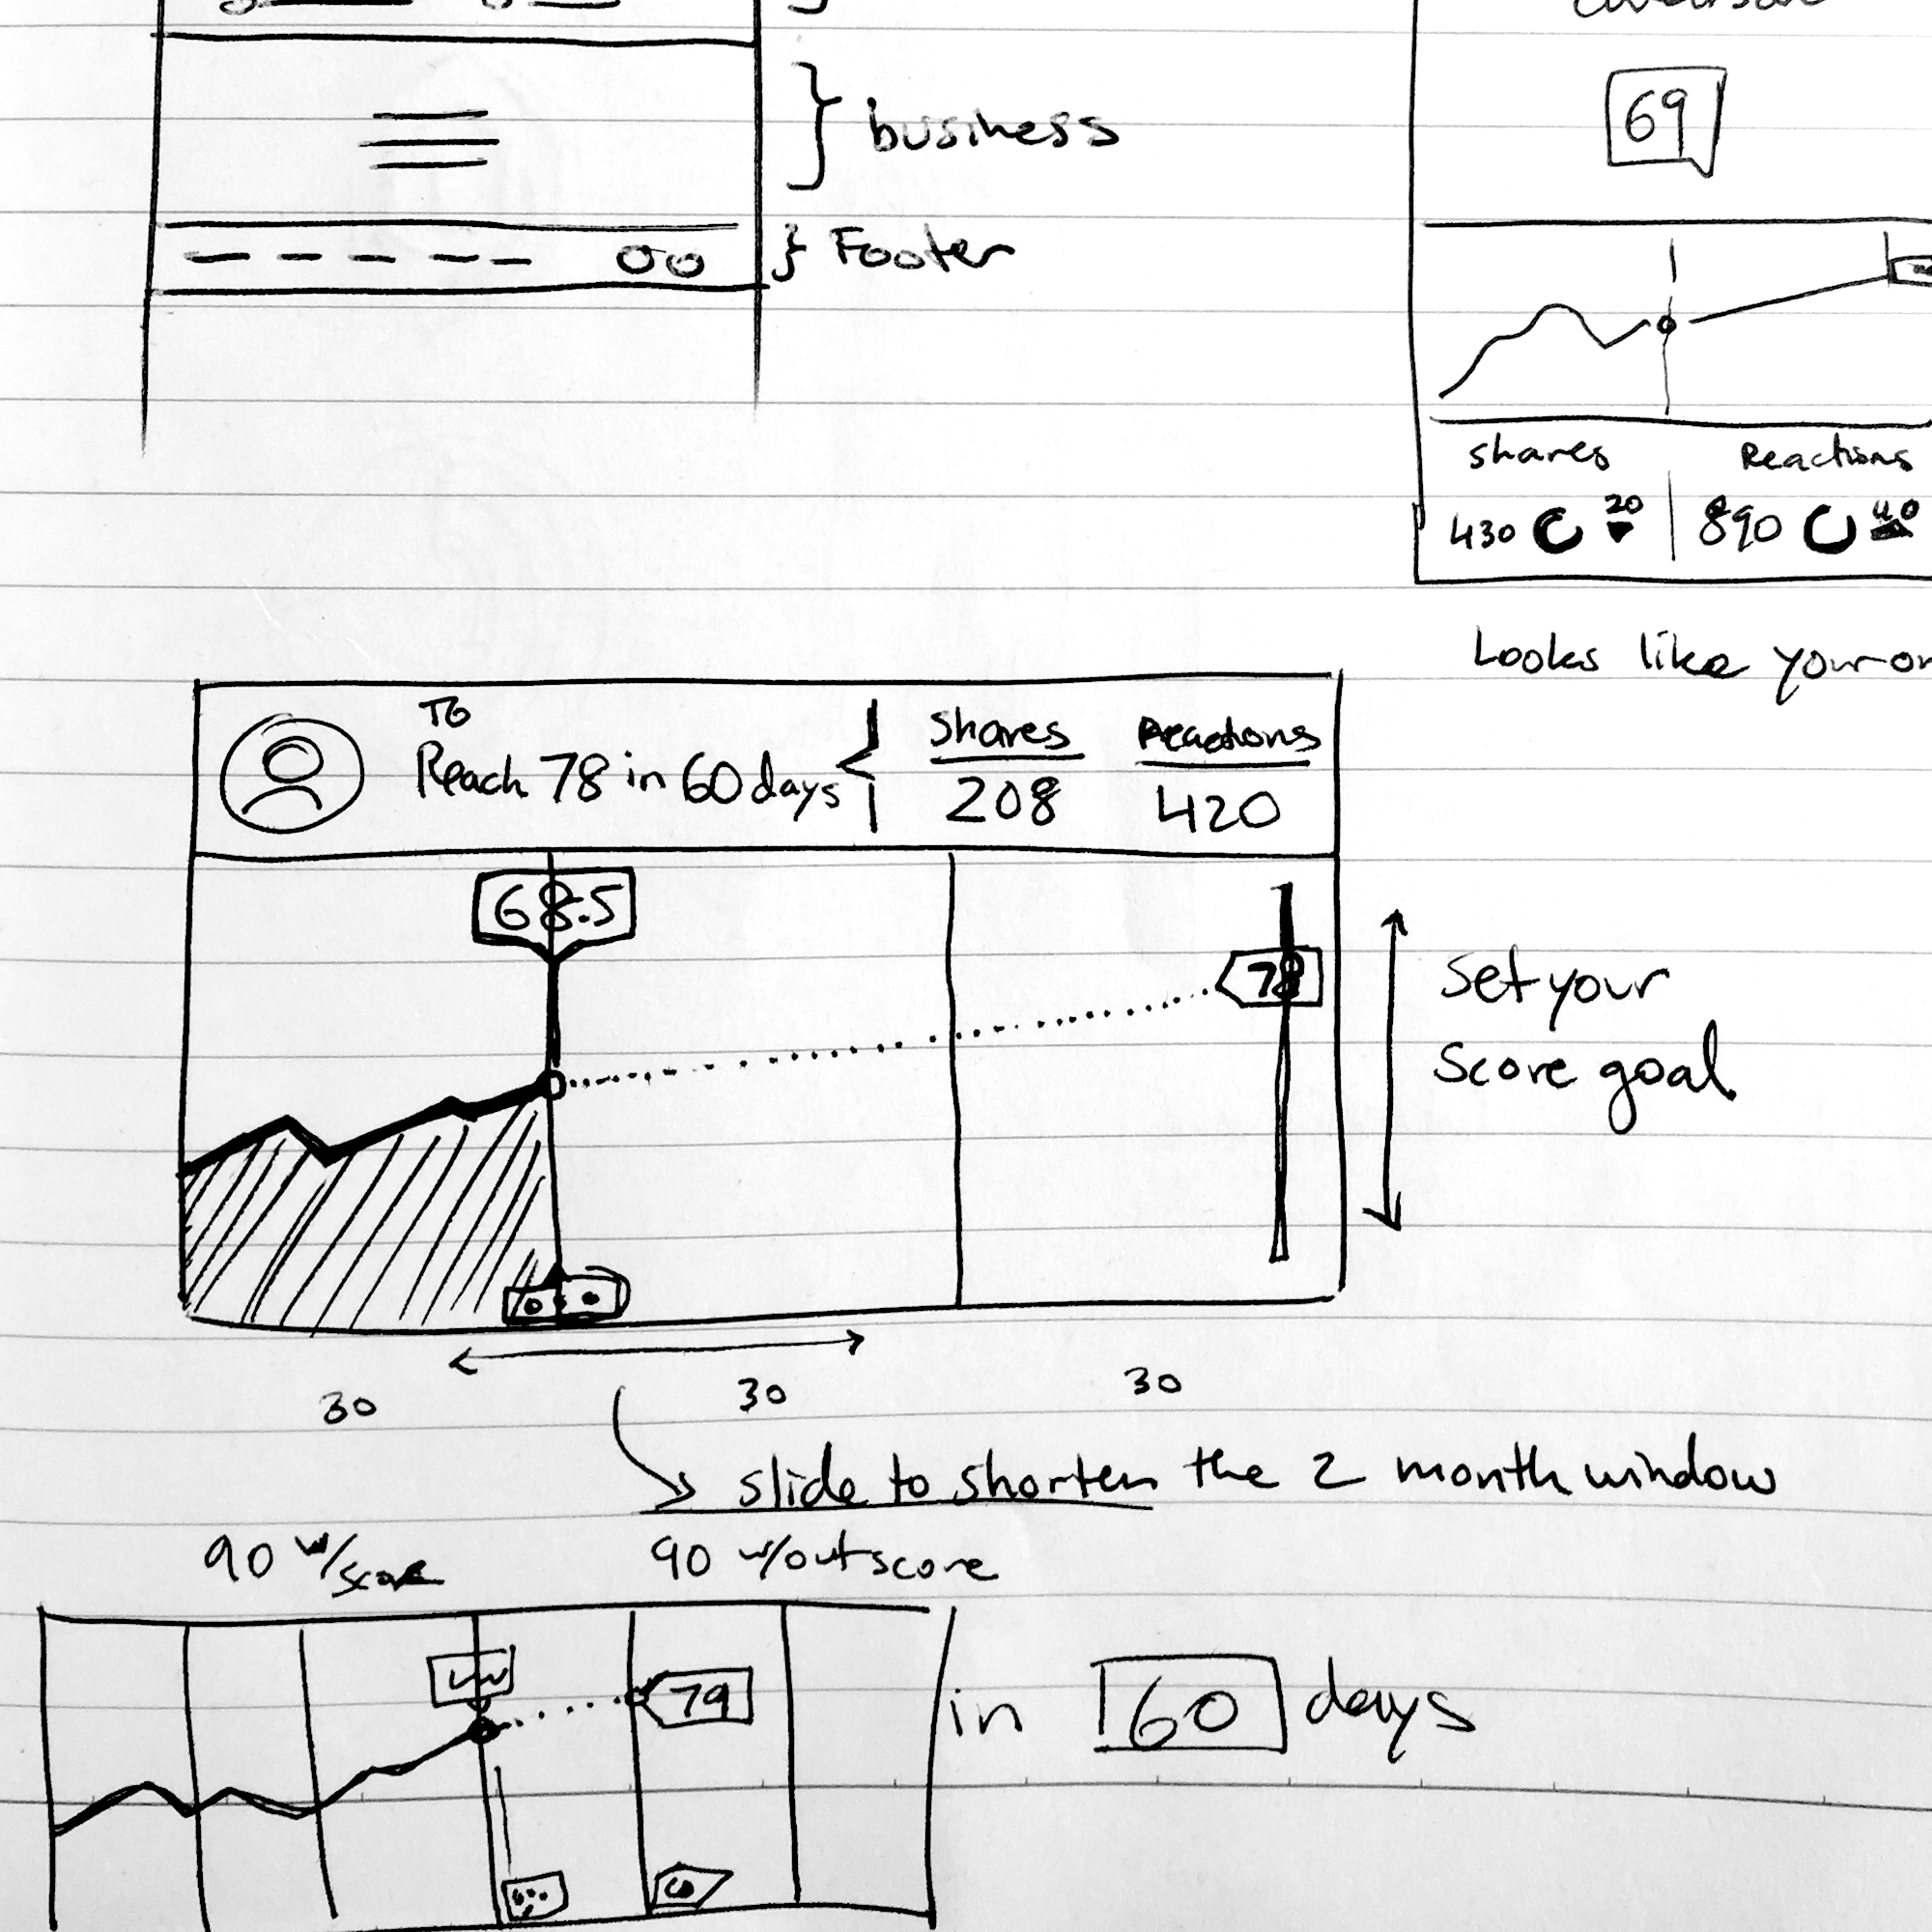 business
Footer
69
shares Reactions
430 20 890 40
Looks like your
TO
Reach 78 in 60 days
Shares Reactions
208 420
68.5
78
Set your
Score goal
30 30 30
slide to shorten the 2 month window
90 w/score 90 w/out score
79
in 60 days